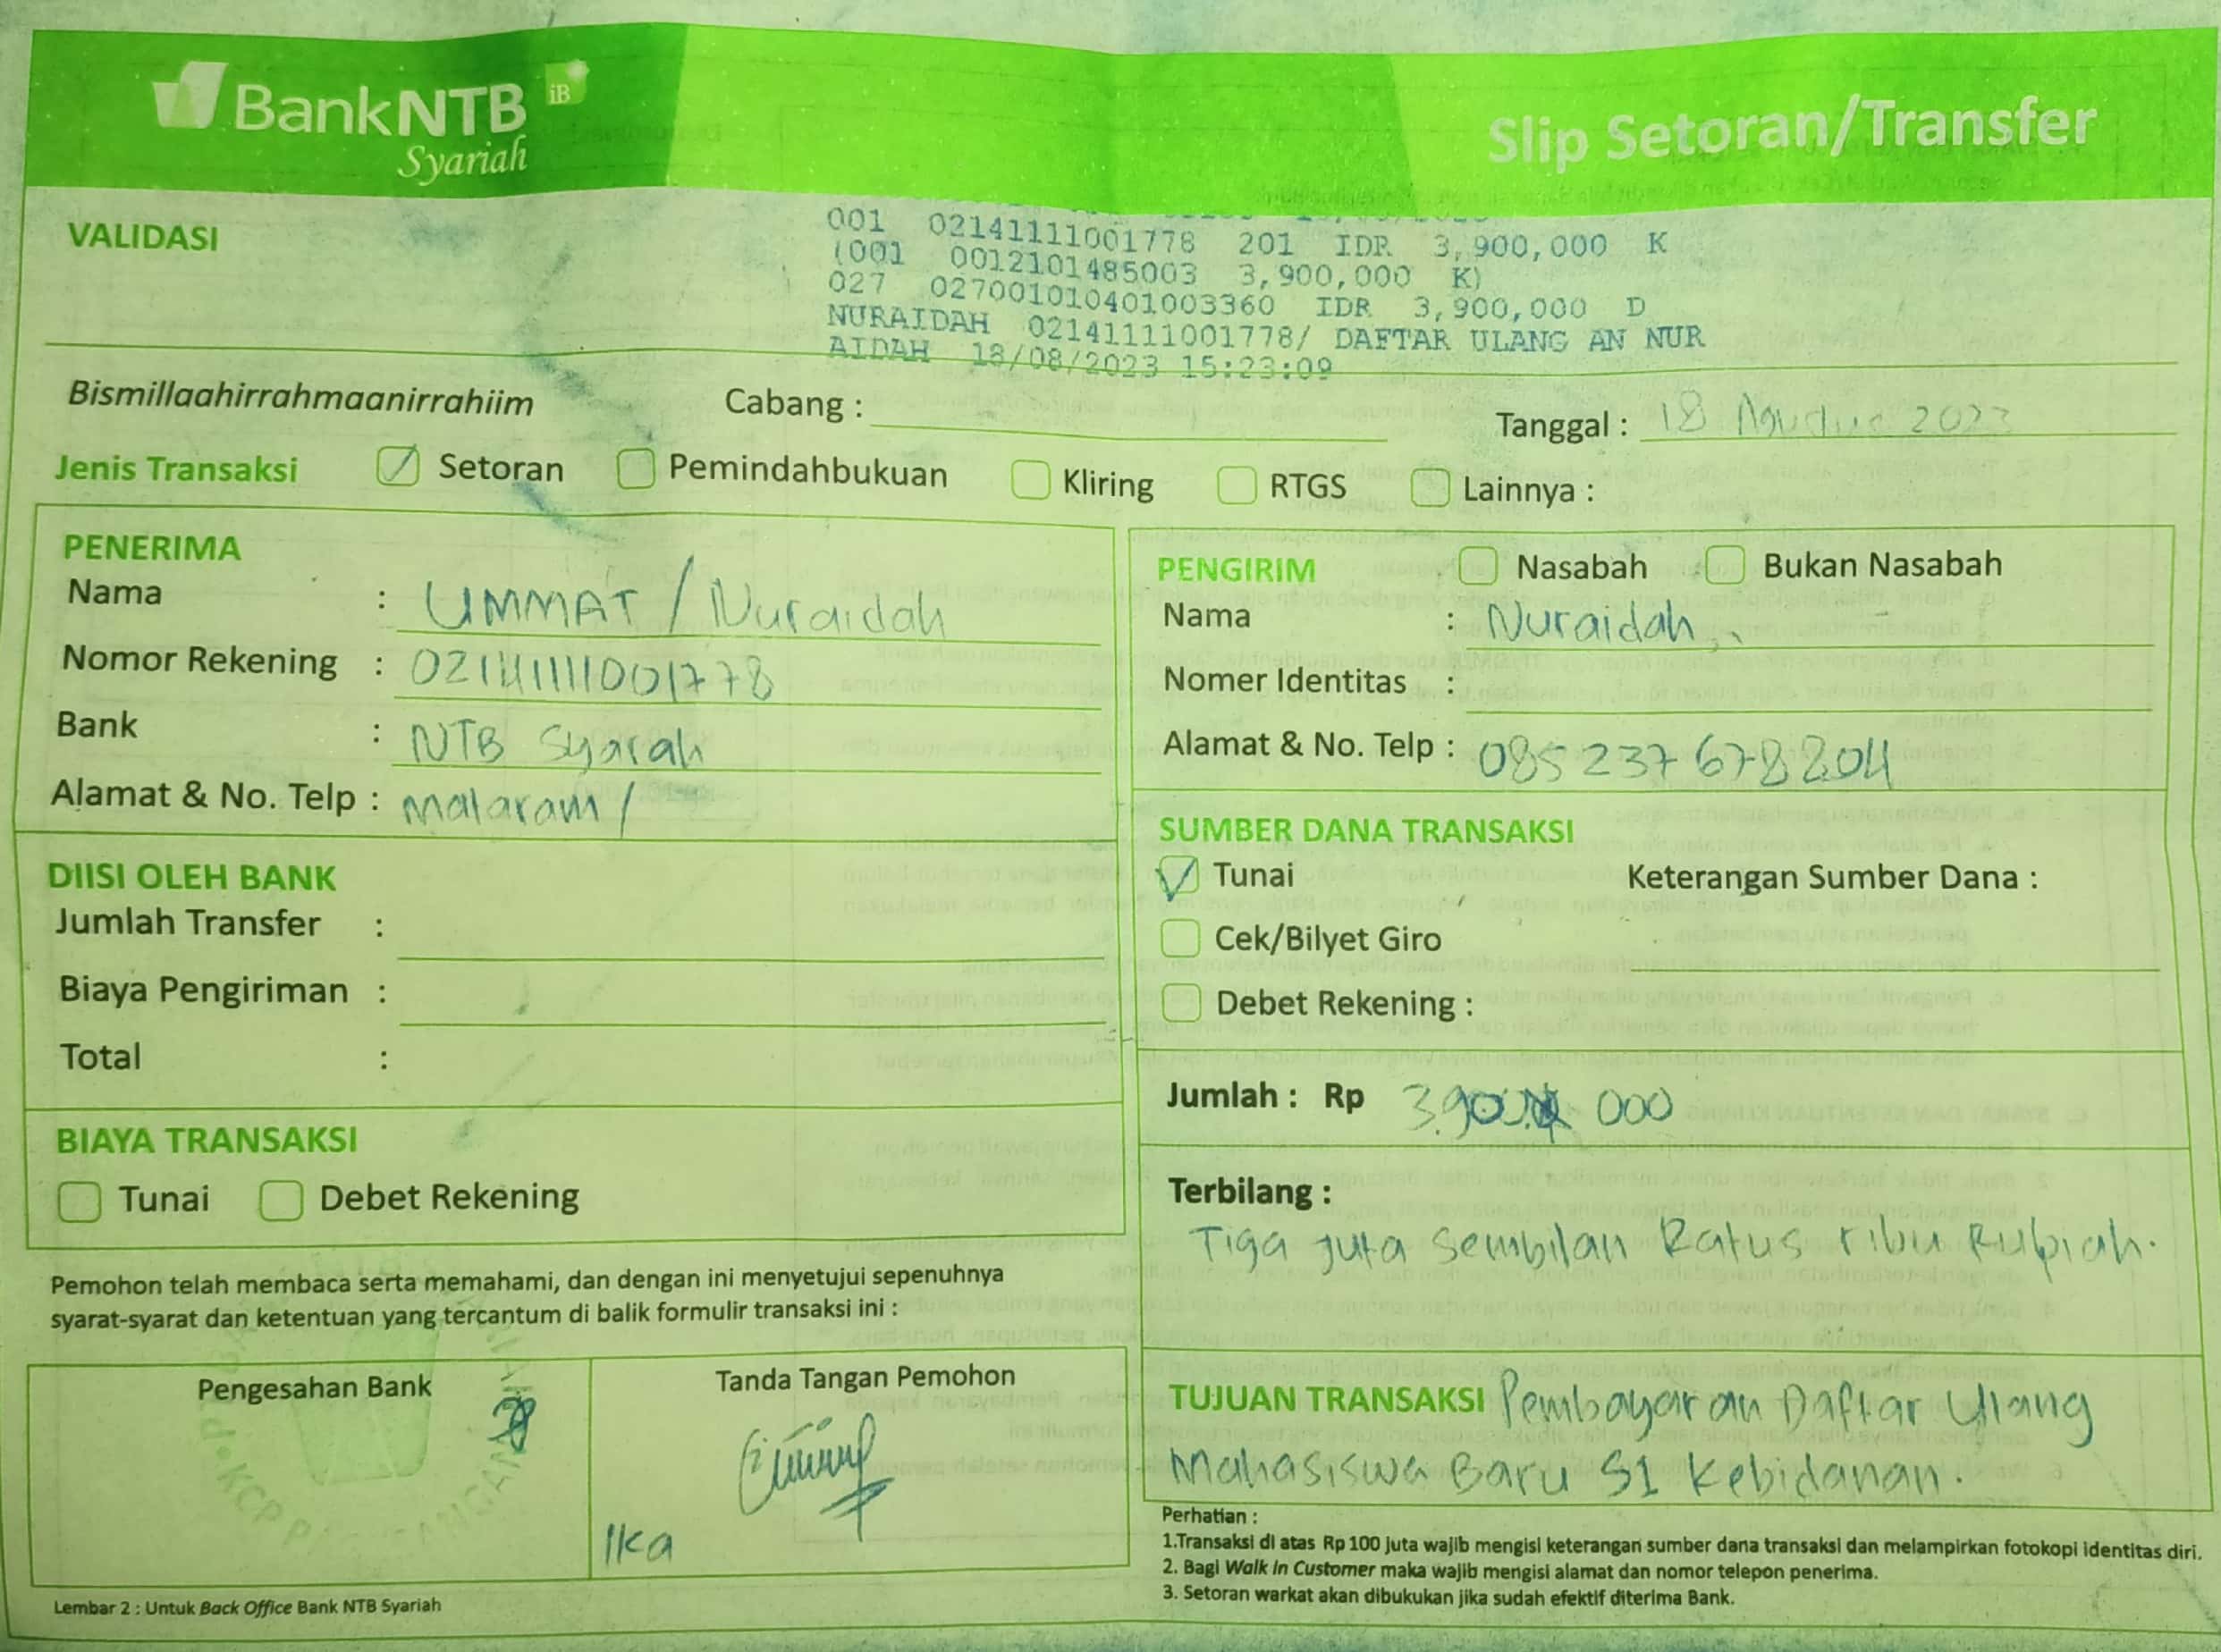 BankNTB iB
Syariah
Slip Setoran/Transfer
VALIDASI
001 02141111001778 201 IDR 3,900,000 K
(001 0012101485003 3,900,000 K)
027 027001010401003360 IDR 3,900,000 D
NURAIDAH 02141111001778/ DAFTAR ULANG AN NUR
AIDAH 18/08/2023 15:23:09
Bismillaahirrahmaanirrahiim Cabang : Tanggal : 18 Agustus 2023
Jenis Transaksi Setoran Pemindahbukuan Kliring RTGS Lainnya :
PENERIMA
Nama : UMMAT / Nuraidah
Nomor Rekening : 02141111001778
Bank : NTB Syarah
Alamat & No. Telp : Mataram /
DIISI OLEH BANK
Jumlah Transfer :
Biaya Pengiriman :
Total :
BIAYA TRANSAKSI
Tunai Debet Rekening
Pemohon telah membaca serta memahami, dan dengan ini menyetujui sepenuhnya
syarat-syarat dan ketentuan yang tercantum di balik formulir transaksi ini :
Pengesahan Bank
Tanda Tangan Pemohon
Ika
Lembar 2 : Untuk Back Office Bank NTB Syariah
PENGIRIM Nasabah Bukan Nasabah
Nama : Nuraidah
Nomer Identitas :
Alamat & No. Telp : 085 237 678 204
SUMBER DANA TRANSAKSI
Tunai Keterangan Sumber Dana :
Cek/Bilyet Giro
Debet Rekening :
Jumlah : Rp 3.900. 000
Terbilang :
Tiga juta Sembilan Ratus ribu Rupiah.
TUJUAN TRANSAKSI Pembayaran Daftar Ulang
Mahasiswa Baru S1 Kebidanan.
Perhatian :
1.Transaksi di atas Rp 100 juta wajib mengisi keterangan sumber dana transaksi dan melampirkan fotokopi identitas diri.
2. Bagi Walk In Customer maka wajib mengisi alamat dan nomor telepon penerima.
3. Setoran warkat akan dibukukan jika sudah efektif diterima Bank.